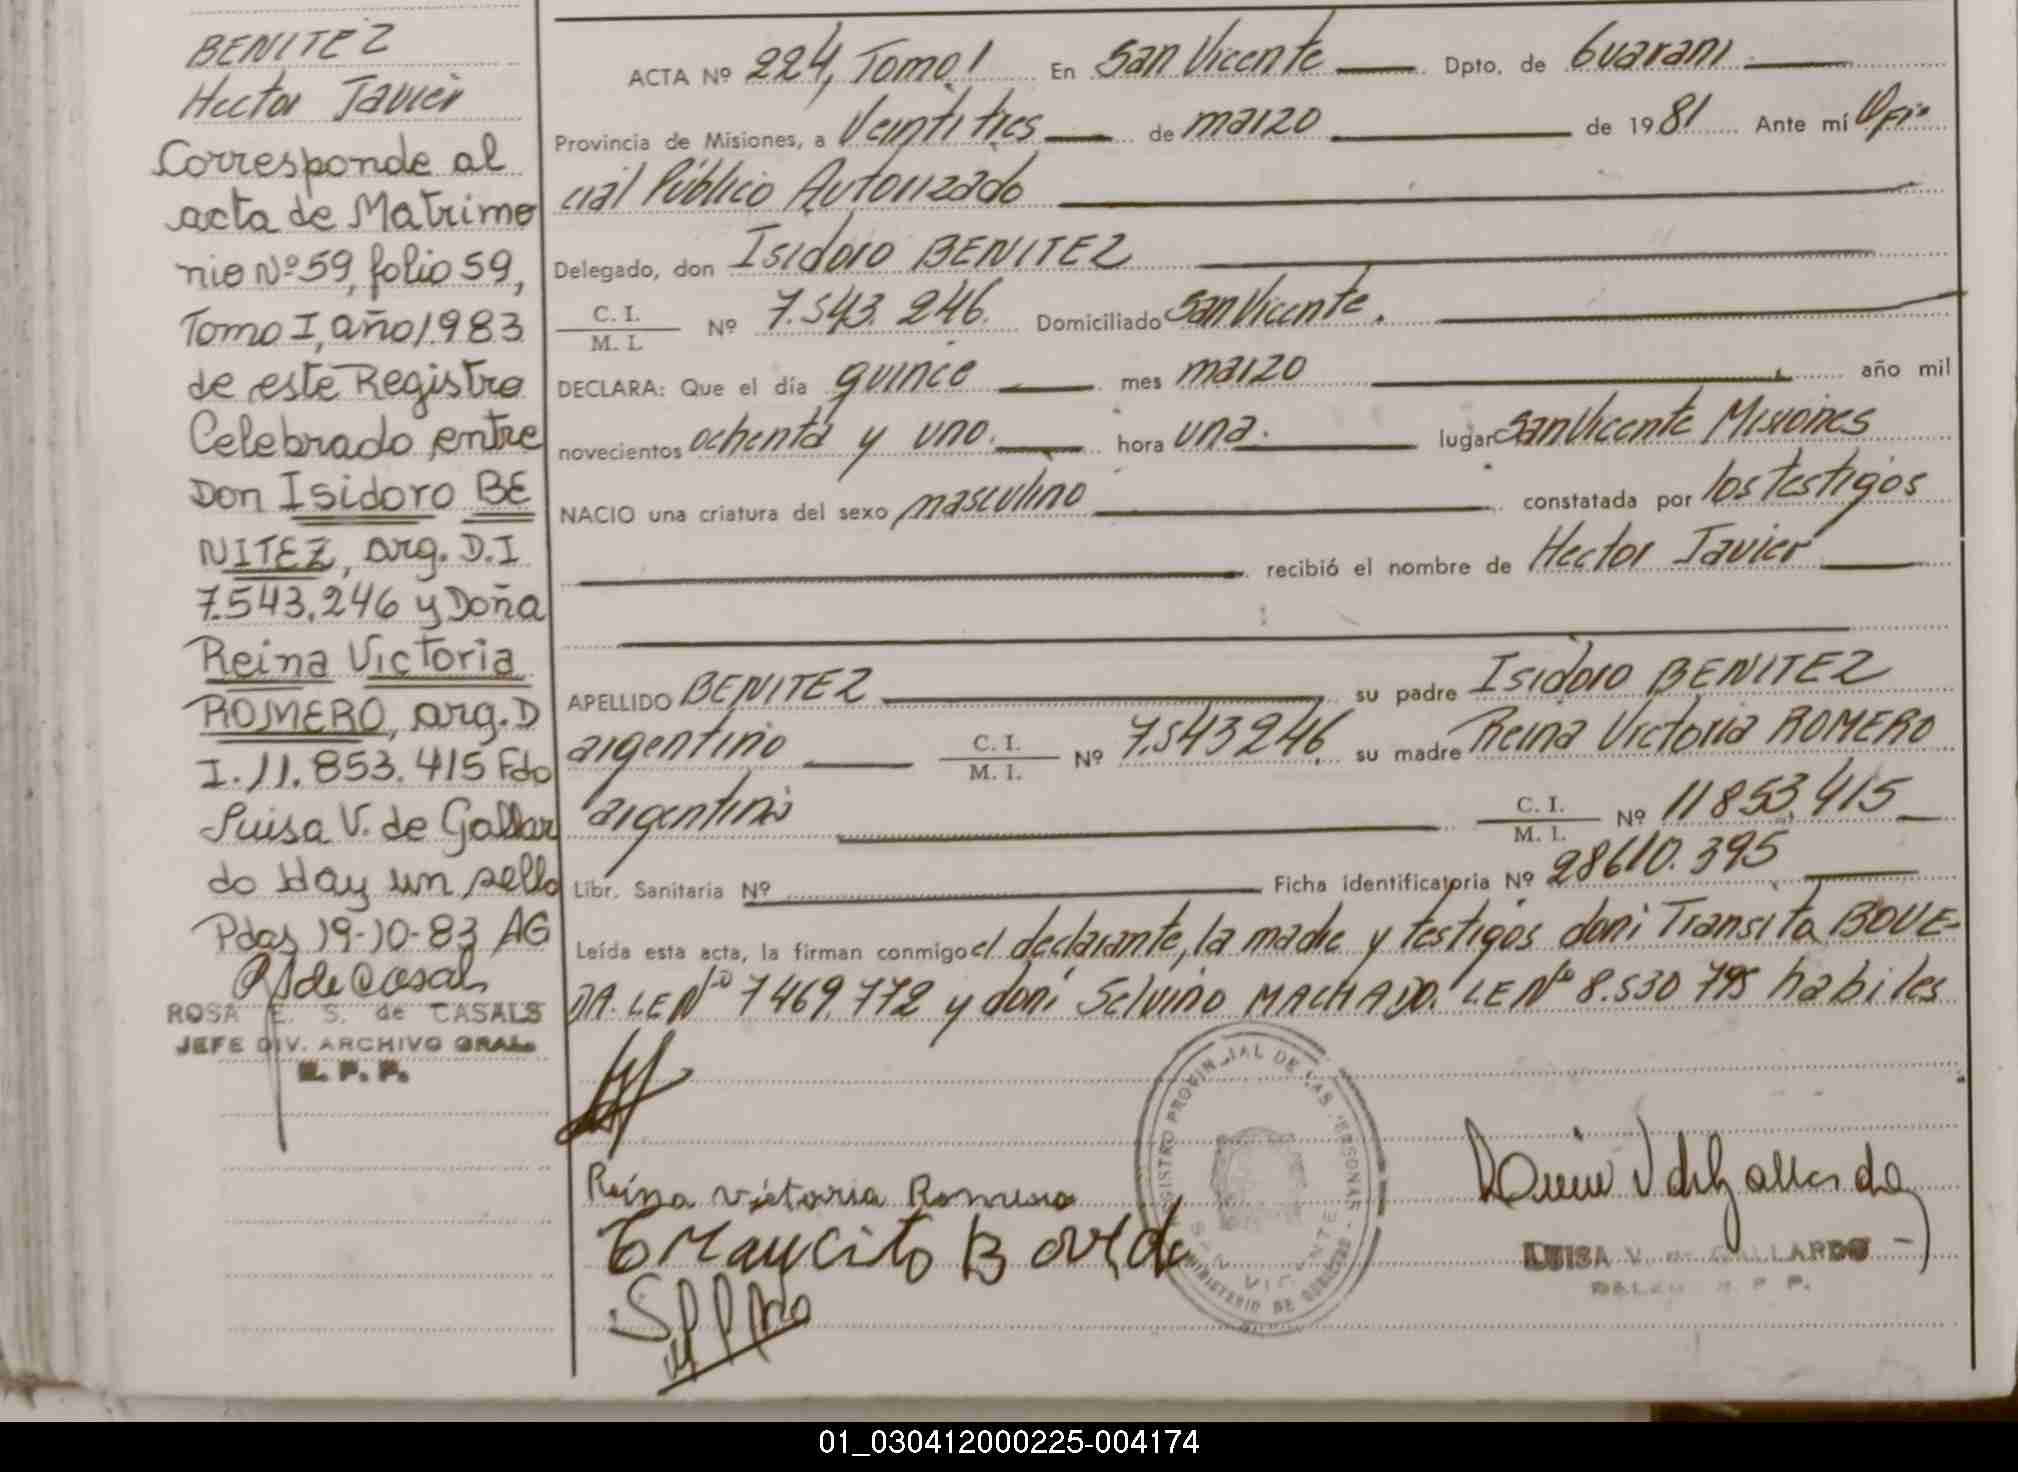 BENITEZ
Hector Javier
Corresponde al
acta de Matrimo
nio Nº 59, folio 59,
Tomo I, año 1983
de este Registro
Celebrado entre
Don Isidoro BE
NITEZ, arg. D.I
7.543.246 y Doña
Reina Victoria
ROMERO, arg. D
I. 11.853.415 Fdo
Luisa V. de Gallar
do Hay un sello
Pdas 19-10-83 AG
RSdeCasals
ROSA E. S. de CASALS
JEFE DIV. ARCHIVO GRAL.
R. P. P.
ACTA Nº 224, Tomo I En San Vicente Dpto. de Guarani
Provincia de Misiones, a Veintitres de marzo de 1981 Ante mí Ofi-
cial Público Autorizado
Delegado, don Isidoro BENITEZ
C. I.
M. I. Nº 7.543.246. Domiciliado San Vicente.
DECLARA: Que el día quince mes marzo año mil
novecientos ochenta y uno. hora una. lugar San Vicente Misiones
NACIO una criatura del sexo masculino constatada por los testigos
recibió el nombre de Hector Javier
APELLIDO BENITEZ su padre Isidoro BENITEZ
argentino C. I.
M. I. Nº 7.543246, su madre Reina Victoria ROMERO
argentina C. I.
M. I. Nº 11853.415
Libr. Sanitaria Nº Ficha identificatoria Nº 28610.395
Leída esta acta, la firman conmigo el declarante, la madre y testigos don: Transito BOVE-
DA. LE Nº 7469.772 y don: Selvino MACHADO. LE Nº 8.530 795 habiles
Reina victoria Romero
REGISTRO PROVINCIAL DE LAS PERSONAS
SAN VICENTE
MINISTERIO DE GOBIERNO
LUISA V. de GALLARDO
01_030412000225-004174